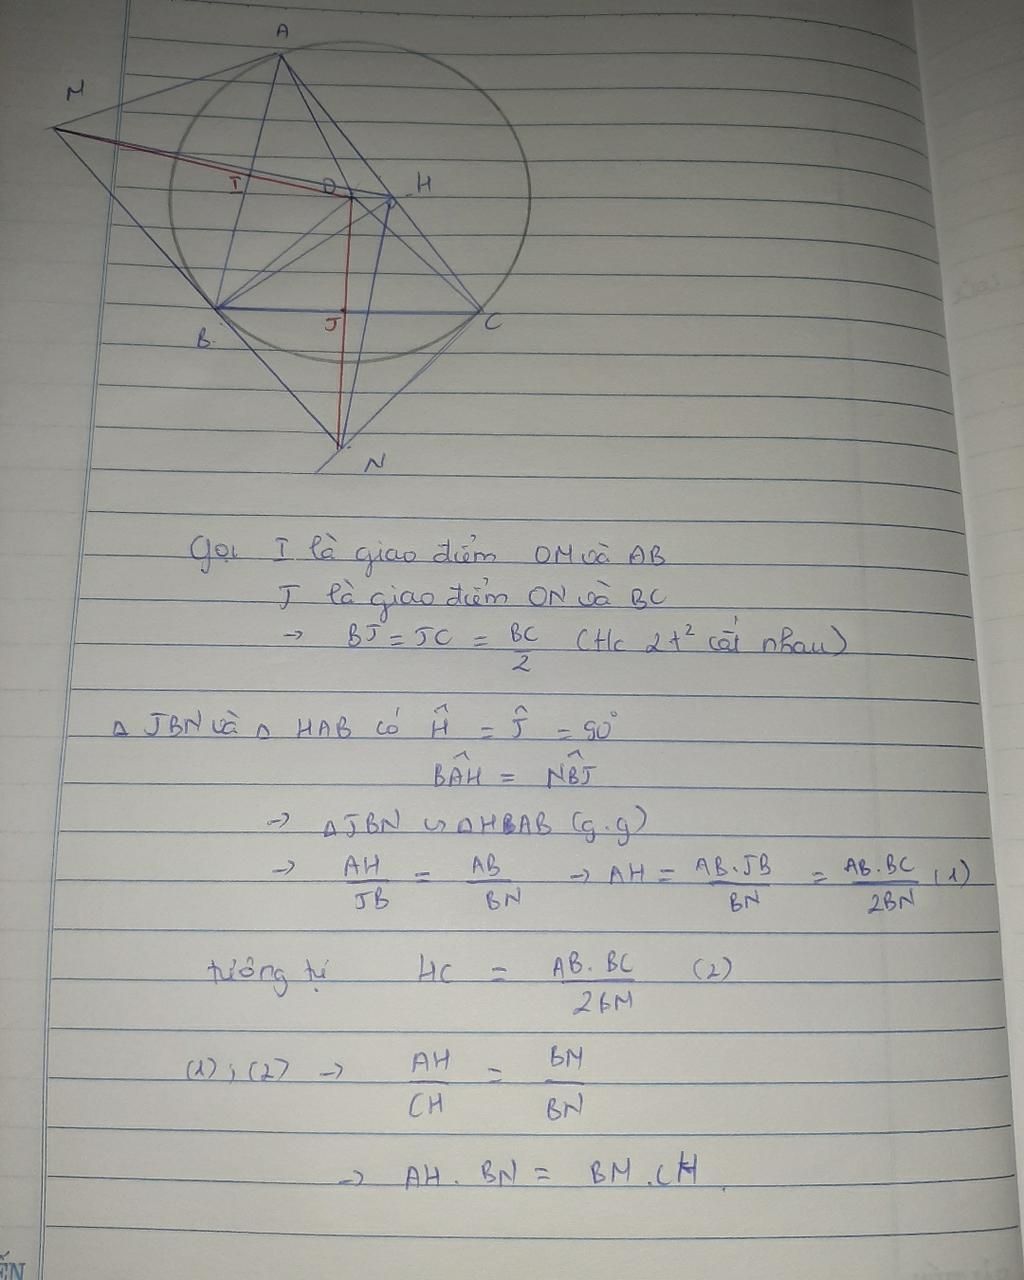 A
M
I
O
H
J
B
C
N
Gọi I là giao điểm OM và AB
J là giao điểm ON và BC
→ BJ = JC = BC/2 (t/c 2t² cắt nhau)
△ JBN và △ HAB có Ĥ = Ĵ = 90°
BÂH = NB̂J
→ △JBN ∽ △HAB (g.g)
→ AH/JB = AB/BN → AH = AB.JB/BN = AB.BC/2BN (1)
tương tự HC = AB.BC/2BM (2)
(1), (2) → AH/CH = BM/BN
→ AH . BN = BM . CH.
ẾN